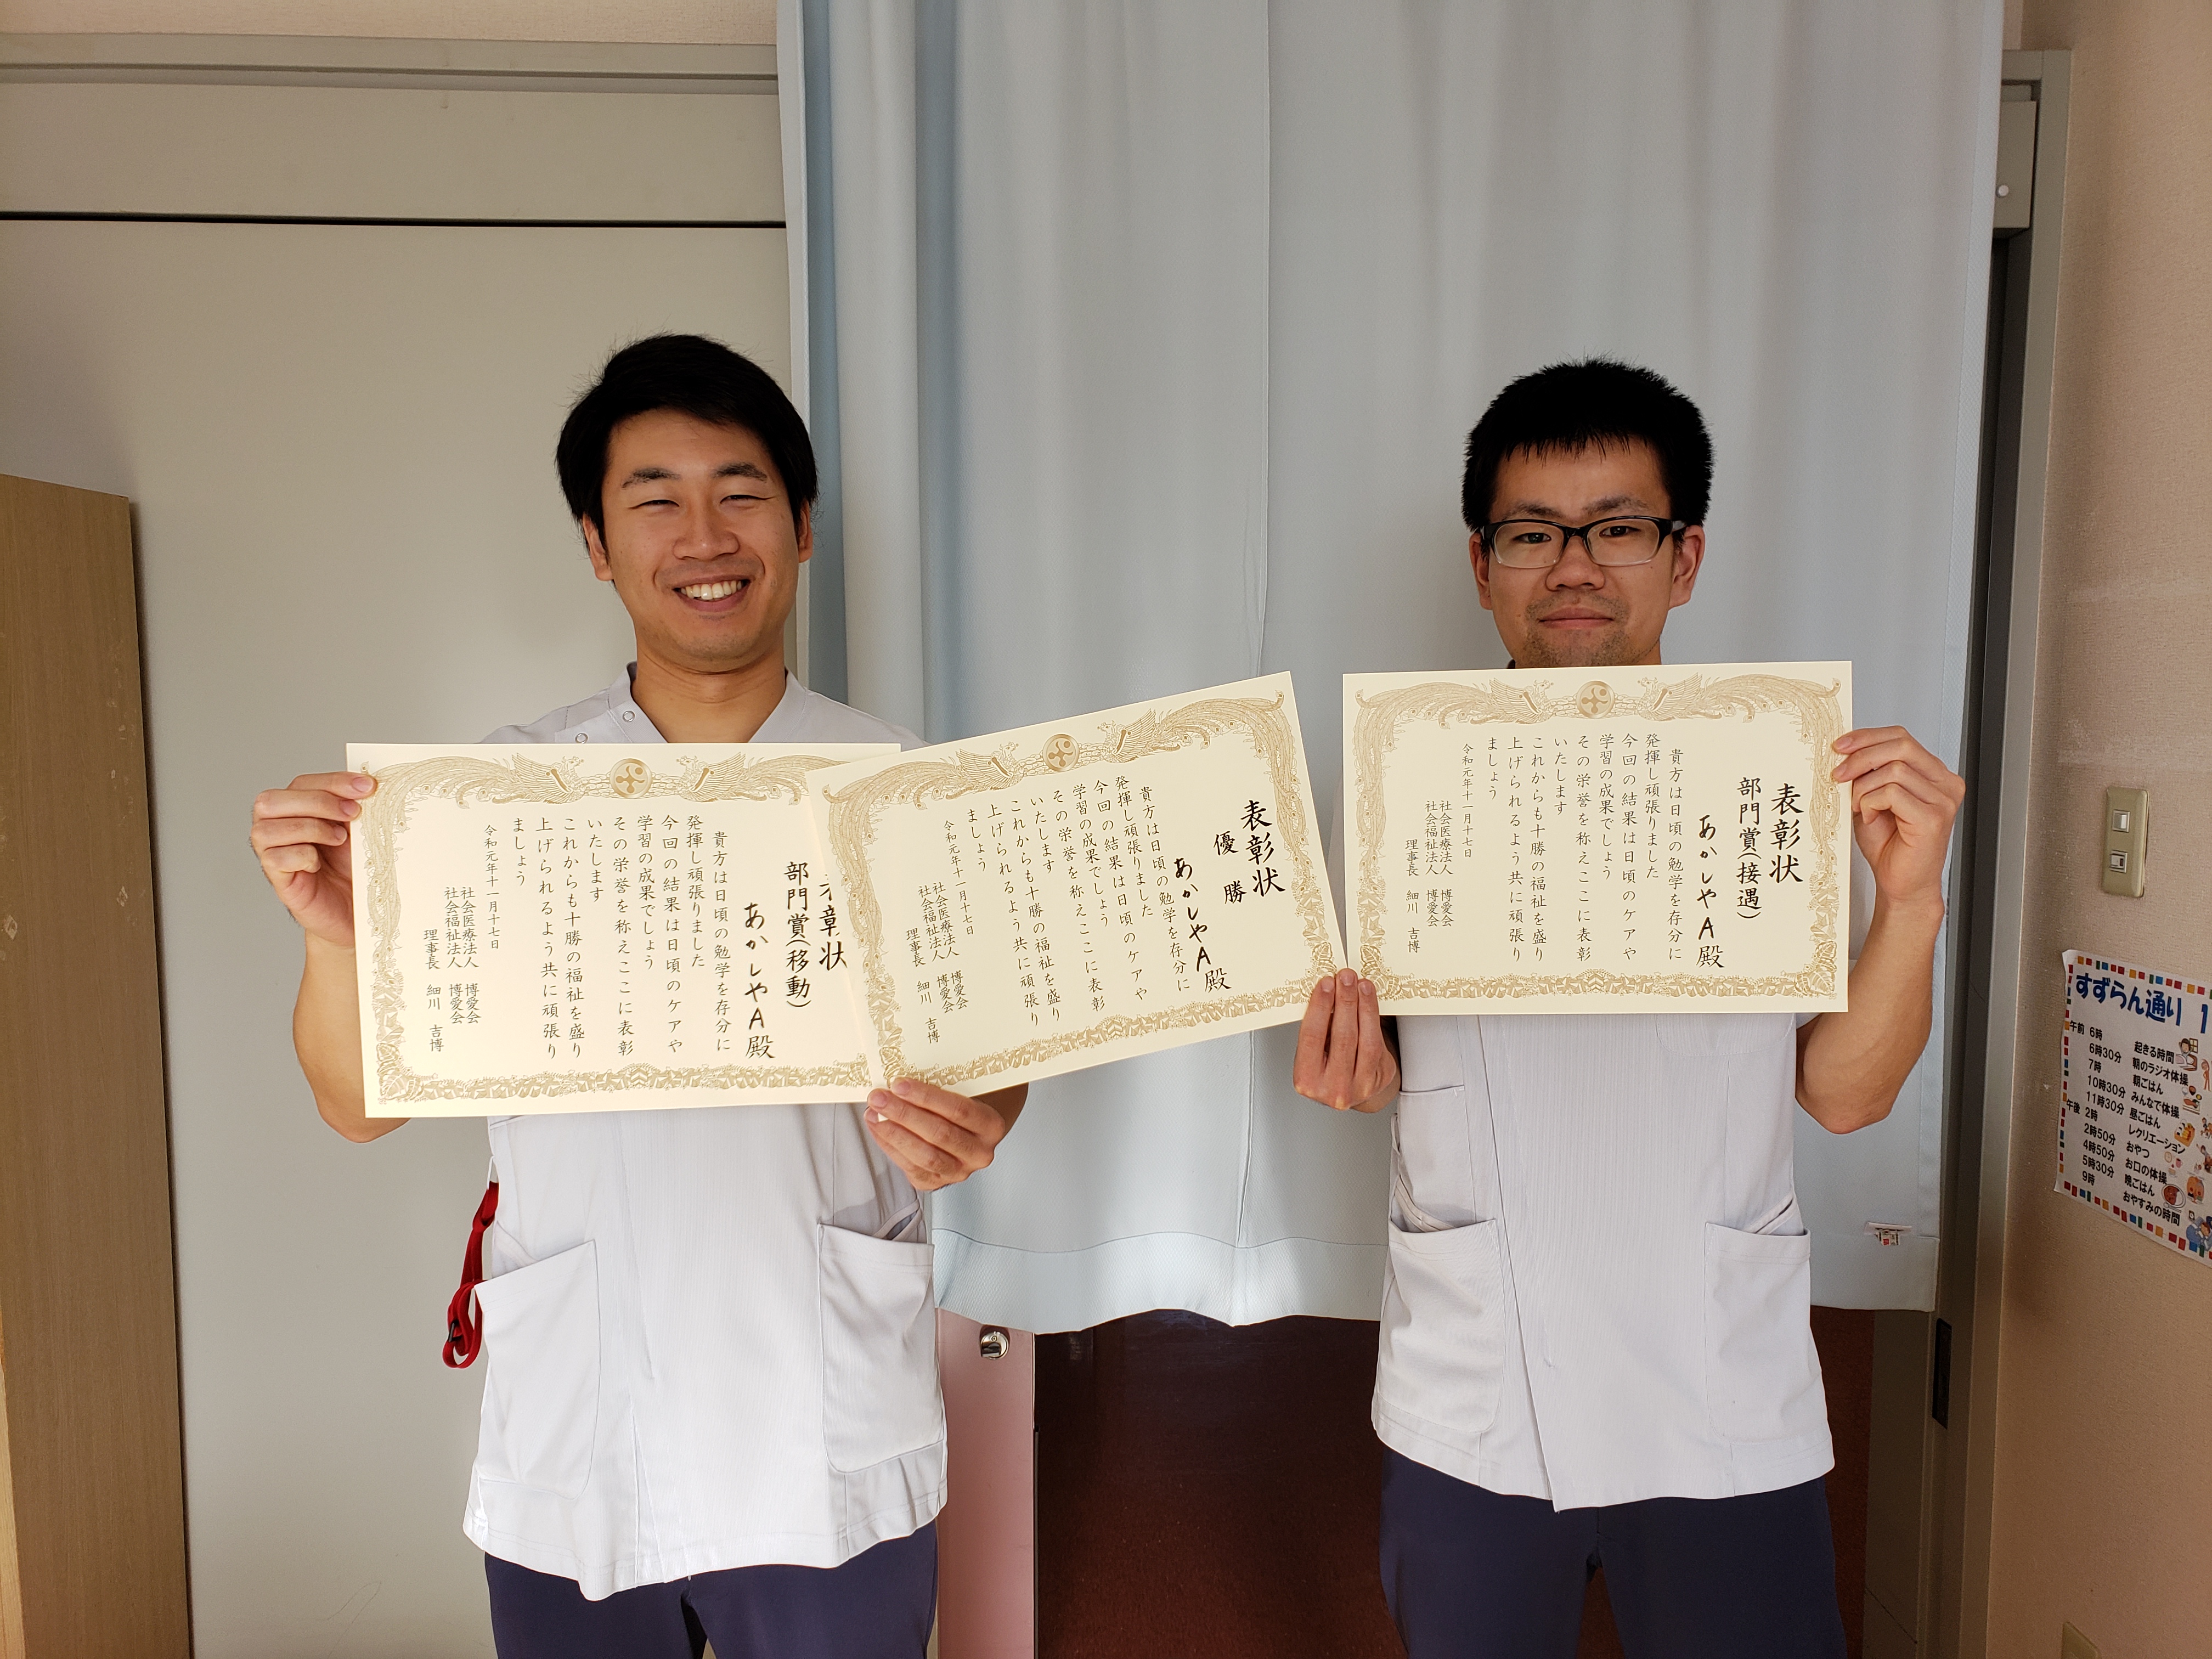 表彰状
部門賞(移動)
あかしやA殿
貴方は日頃の勉学を存分に
発揮し頑張りました
今回の結果は日頃のケアや
学習の成果でしょう
その栄誉を称えここに表彰
いたします
これからも十勝の福祉を盛り
上げられるよう共に頑張り
ましょう
令和元年十一月十七日
社会医療法人 博愛会
社会福祉法人 博愛会
理事長 細川 吉博
表彰状
優勝
あかしやA殿
貴方は日頃の勉学を存分に
発揮し頑張りました
今回の結果は日頃のケアや
学習の成果でしょう
その栄誉を称えここに表彰
いたします
これからも十勝の福祉を盛り
上げられるよう共に頑張り
ましょう
令和元年十一月十七日
社会医療法人 博愛会
社会福祉法人 博愛会
理事長 細川 吉博
表彰状
部門賞(接遇)
あかしやA殿
貴方は日頃の勉学を存分に
発揮し頑張りました
今回の結果は日頃のケアや
学習の成果でしょう
その栄誉を称えここに表彰
いたします
これからも十勝の福祉を盛り
上げられるよう共に頑張り
ましょう
令和元年十一月十七日
社会医療法人 博愛会
社会福祉法人 博愛会
理事長 細川 吉博
すずらん通り 1
午前 6時 起きる時間
6時30分 朝のラジオ体操
7時 朝ごはん
10時30分 みんなで体操
11時30分 昼ごはん
午後 2時 レクリエーション
2時50分 おやつ
4時50分 お口の体操
5時30分 晩ごはん
9時 おやすみの時間